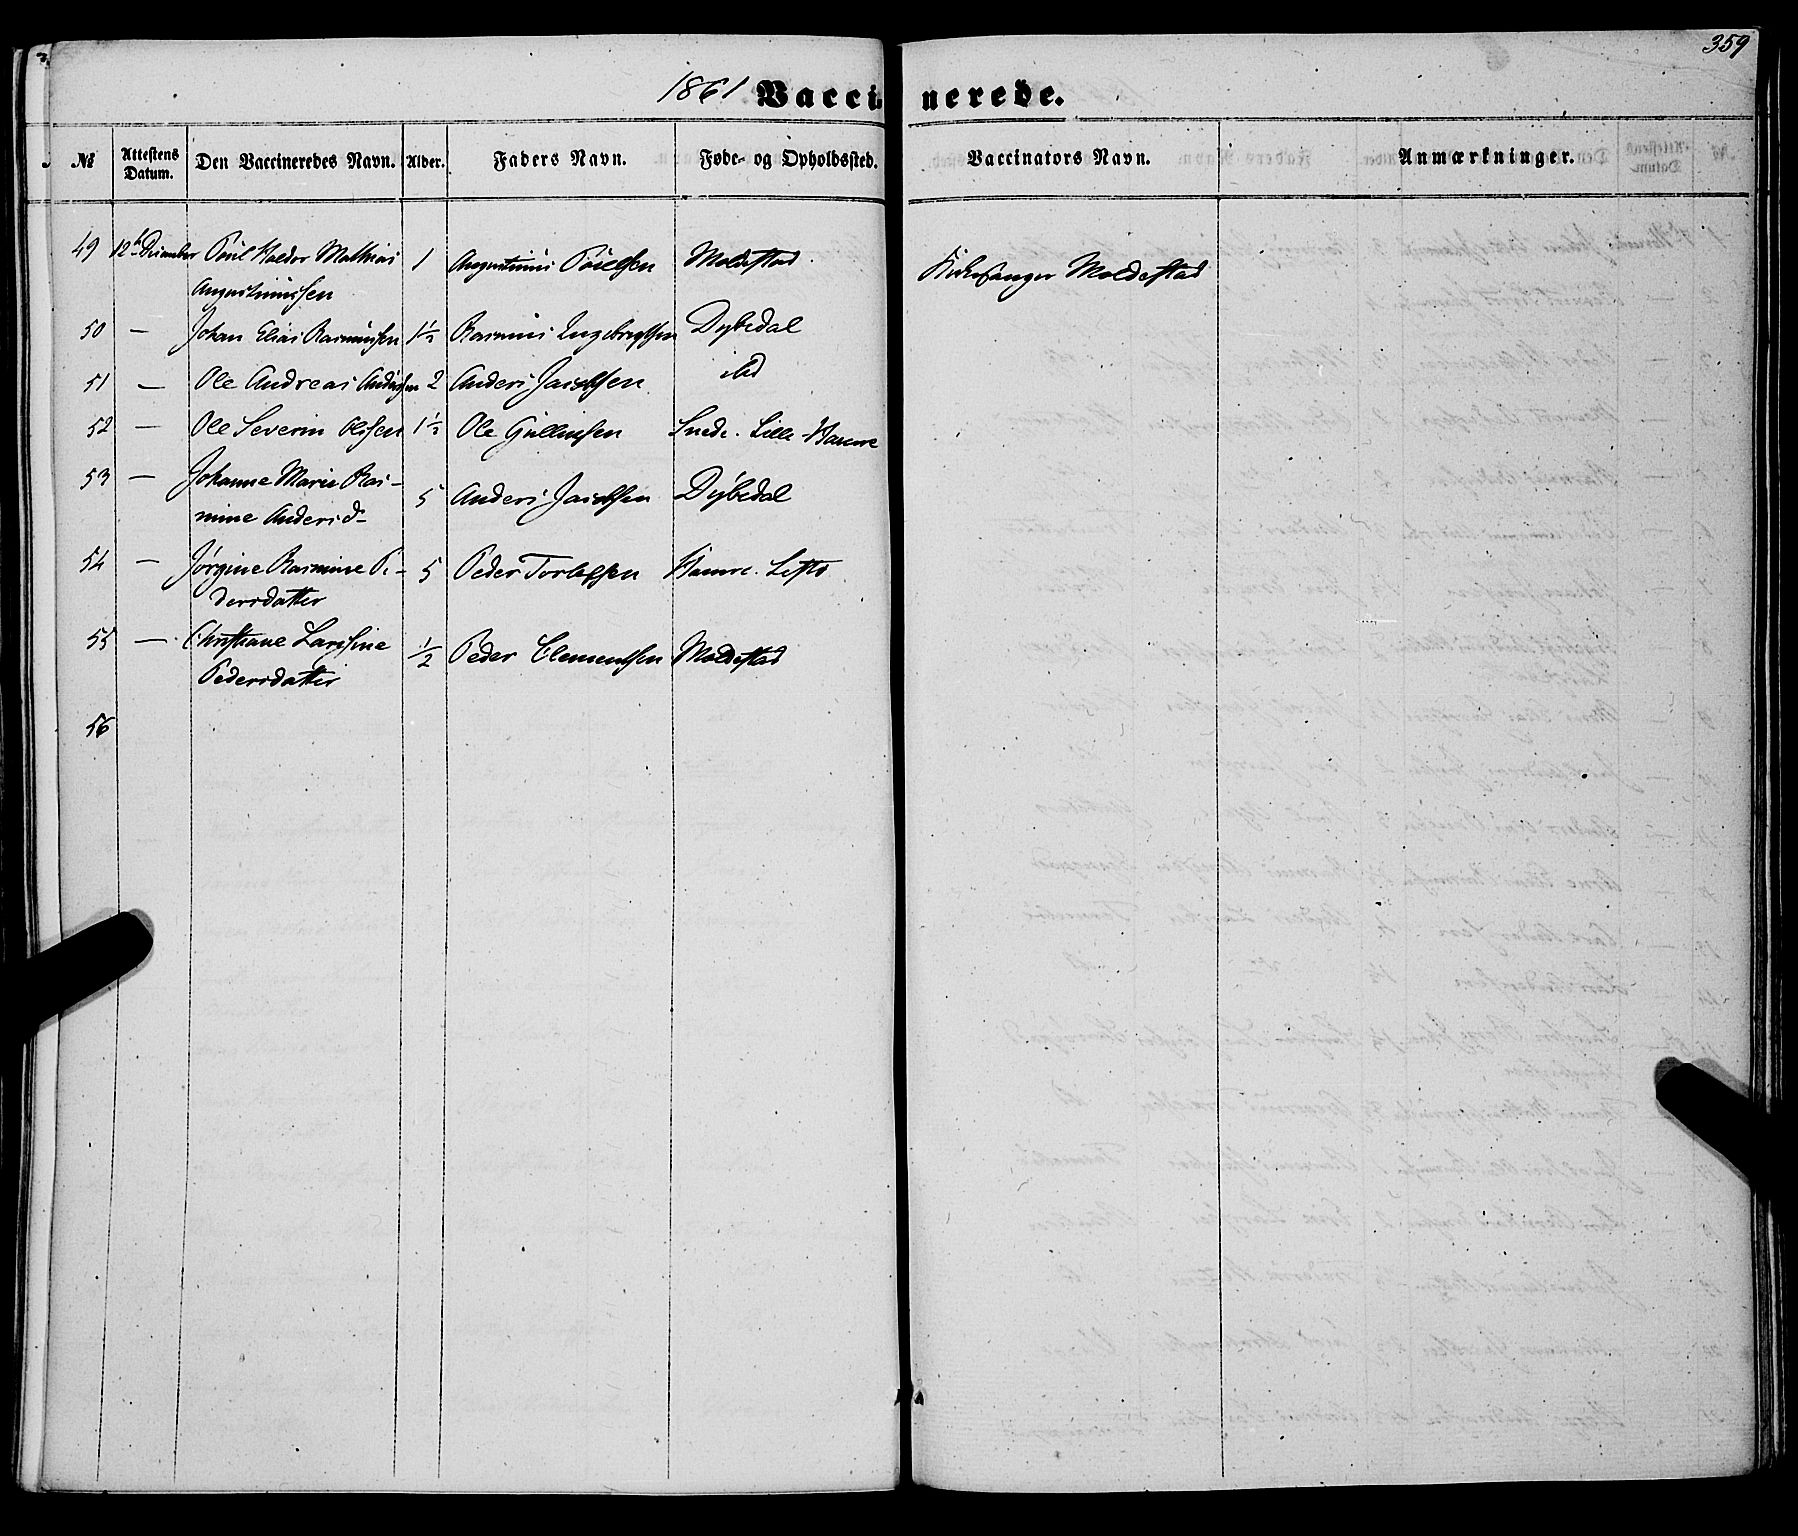 359
1861 Vaccinerede.
№ Attestens Datum. Den Vaccineredes Navn. Alder. Faders Navn. Føde- og Opholdssted. Vaccinators Navn. Anmærkninger.
49 12te December Poul Haldor Mathias 1 Augustinus Poulsen Moldestad Kirkesanger Moldestad
Augustinussen
50 — Johan Elias Rasmussen 1½ Rasmus Ingebrigtsen Dybedal
51 — Ole Andreas Andersen 2 Anders Jacobsen ibd
52 — Ole Severin Olssen 1½ Ole Gulliksen Lille-Hamre
53 — Johanne Marie Ras-
mine Andersd- 5 Anders Jacobsen Dybedal
54 — Jørgine Rasmine Pe- 5 Peder Torlefsen Hamre
dersdatter
55 — Christiane Larssine ½ Peder Clementsen Moldestad
Pedersdatter
56